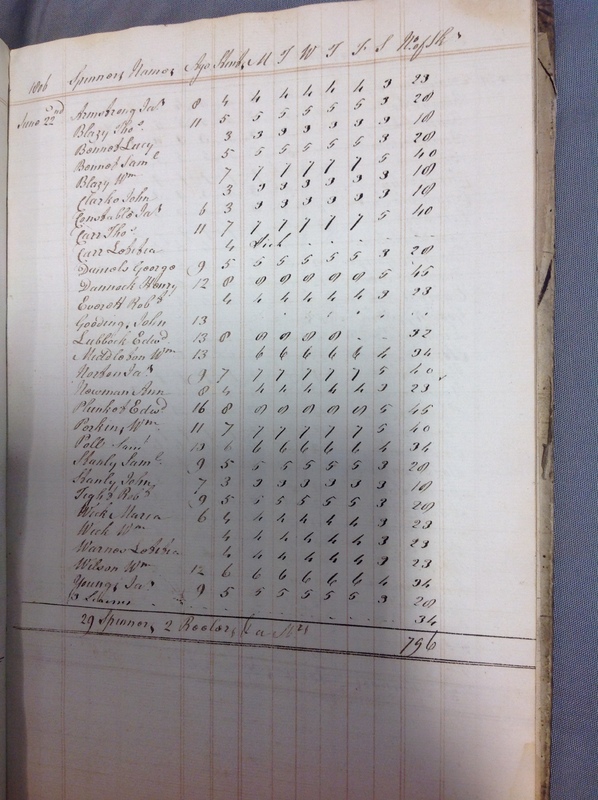 1806 Spinners Names Age Skns M T W T F S No of Sk s
June 22nd Armstrong Jas 8 4 4 4 4 4 4 3 23
Blazy Thos 11 5 5 5 5 5 5 3 28
Bennet Lucy 3 3 3 3 3 3 3 18
Bennet Saml 5 5 5 5 5 5 3 28
Blazy Wm 7 7 7 7 7 7 5 40
Clarke John 3 3 3 3 3 3 3 18
Constable Jas 6 3 3 3 3 3 3 3 18
Carr Thos 11 7 7 7 7 7 7 5 40
Carr Letitia 4 Sick
Daniels George 9 5 5 5 5 5 5 3 28
Dannock Henry 12 8 8 8 8 8 8 5 45
Everett Robt 4 4 4 4 4 4 3 23
Gooding John 13
Lubbock Edwd 13 8 8 8 8 8 32
Middleton Wm 13 6 6 6 6 6 4 34
Norton Jas 9 7 7 7 7 7 7 5 40
Newman Ann 8 4 4 4 4 4 4 3 23
Plunket Edwd 16 8 8 8 8 8 8 5 45
Perkins Wm 11 7 7 7 7 7 7 5 40
Poll Saml 13 6 6 6 6 6 6 4 34
Stanly Saml 9 5 5 5 5 5 5 3 28
Stanly John 7 3 3 3 3 3 3 3 18
Tight Robt 9 5 5 5 5 5 5 3 28
Wick Maria 6 4 4 4 4 4 4 3 23
Wick Wm 4 4 4 4 4 4 3 23
Warnes Letitia 4 4 4 4 4 4 3 23
Wilson Wm 12 6 6 6 6 6 6 4 34
Young Jas 9 5 5 5 5 5 5 3 28
34
29 Spinners 2 Reelers 796